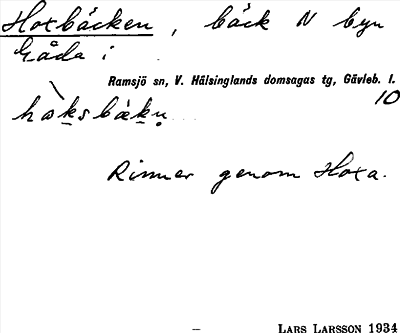 Hoxbäcken, bäck N byn
Gåda i
Ramsjö sn, V. Hälsinglands domsagas tg, Gävleb. l.
10
hɷ̀ksbækn̥
Rinner genom Hoxa.
– LARS LARSSON 1934